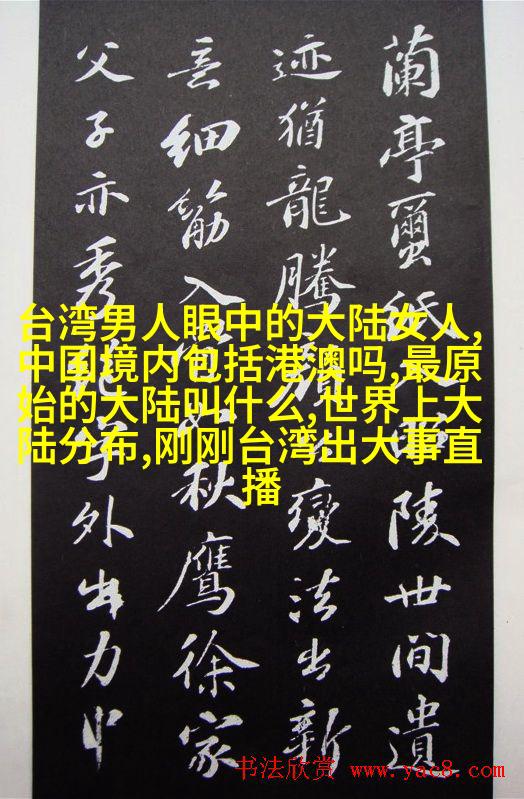 蘭亭紙陵世間遺
迹猶龍騰變法出新
意細筋入秋鷹徐家
父子亦秀字外出力中
台湾男人眼中的大陆女人,
中国境内包括港澳吗,最原
始的大陆叫什么,世界上大
陆分布,刚刚台湾出大事直
播
书法欣赏 www.yac8.com